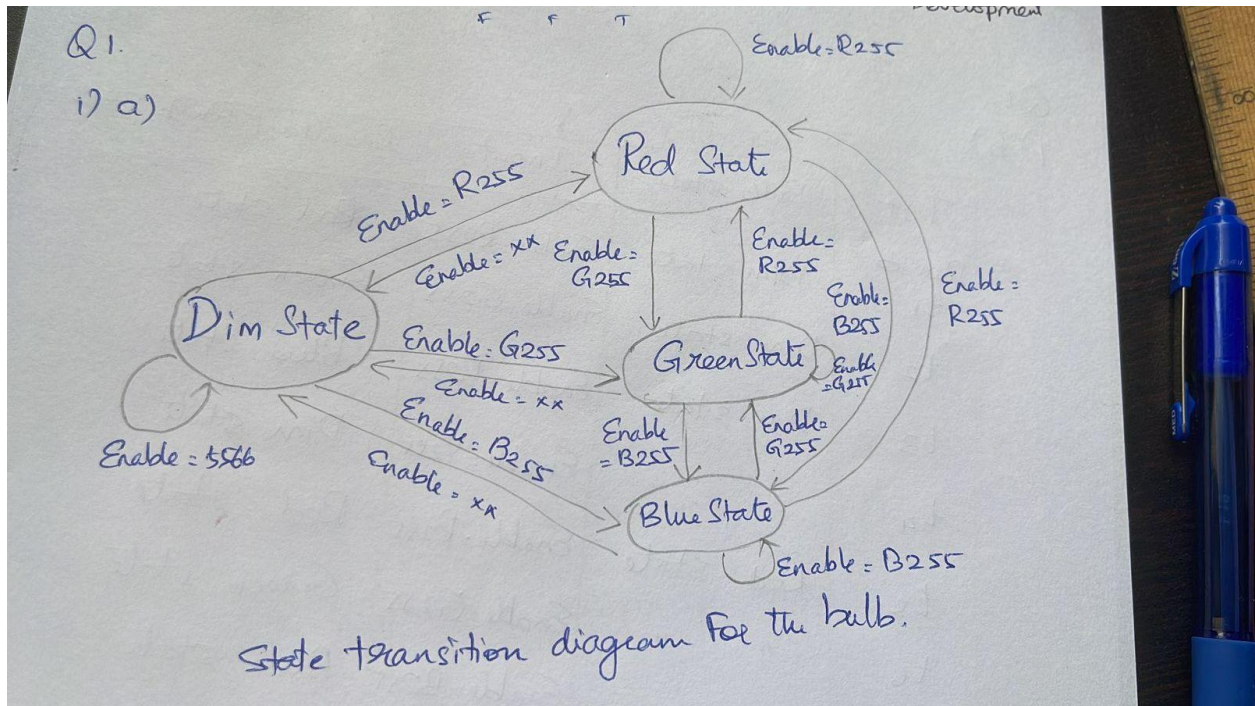 F F T
Development
Q1.
i) a)
Enable=R255
Red State
Enable=R255
Enable=xx
Enable=
G255
Enable=
R255
Enable=
B255
Enable=
R255
Dim State
Enable=G255
Enable=xx
Green State
Enable
=G255
Enable=B255
Enable=xx
Enable
=B255
Enable=
G255
Enable=5566
Blue State
Enable=B255
State transition diagram For the bulb.
8